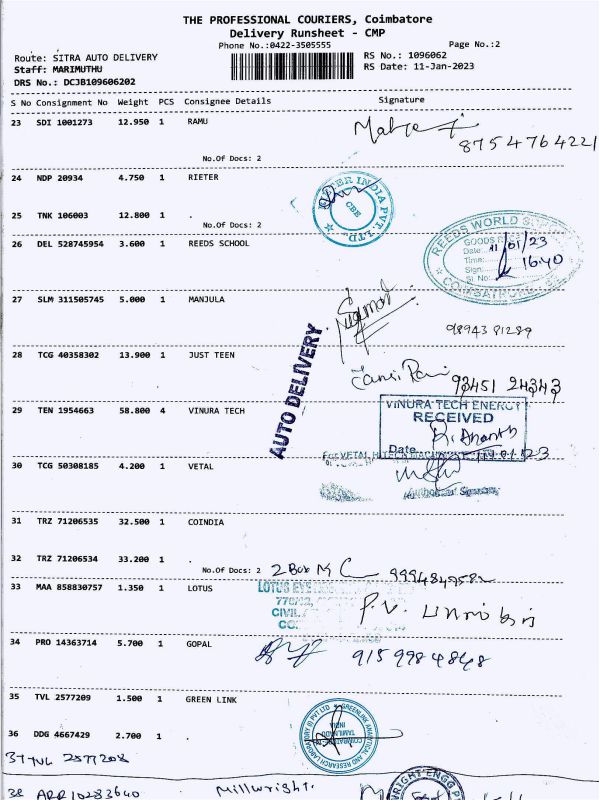 THE PROFESSIONAL COURIERS, Coimbatore
Delivery Runsheet - CMP
Phone No.:0422-3505555
Page No.:2
Route: SITRA AUTO DELIVERY
RS No.: 1096062
Staff: MARIMUTHU
RS Date: 11-Jan-2023
DRS No.: DCJB109606202
S No Consignment No Weight PCS Consignee Details Signature
23 SDI 1001273 12.950 1 RAMU
8754764221
No.Of Docs: 2
24 NDP 20934 4.750 1 RIETER
INDIA PVT. LTD.
CBE
25 TNK 106003 12.800 1 .
No.Of Docs: 2
26 DEL 528745954 3.600 1 REEDS SCHOOL
REEDS WORLD
GOODS
Date: 11/01/23
Time: 16.40
Sign:
Sl No:
27 SLM 311505745 5.000 1 MANJULA
98943 81289
AUTO DELIVERY
28 TCG 40358302 13.900 1 JUST TEEN
93451 24343
29 TEN 1954663 58.800 4 VINURA TECH
VINURA TECH ENERGY
RECEIVED
Date
30 TCG 50308185 4.200 1 VETAL
For VETAL HITECH
Authorised Signatory
31 TRZ 71206535 32.500 1 COINDIA
32 TRZ 71206534 33.200 1 .
No.Of Docs: 2 2 Box
33 MAA 858830757 1.350 1 LOTUS
LOTUS EYE
CIVIL
P.V.
34 PRO 14363714 5.700 1 GOPAL
9159984848
35 TVL 2577209 1.500 1 GREEN LINK
GREENLINK ANALYTICAL AND RESEARCH LABORATORY (I) PVT LTD
COIMBATORE
TAMILNADU
INDIA
36 DDG 4667429 2.700 1 .
37 TVL 2577208
38 ARR 10283640 Millwright.